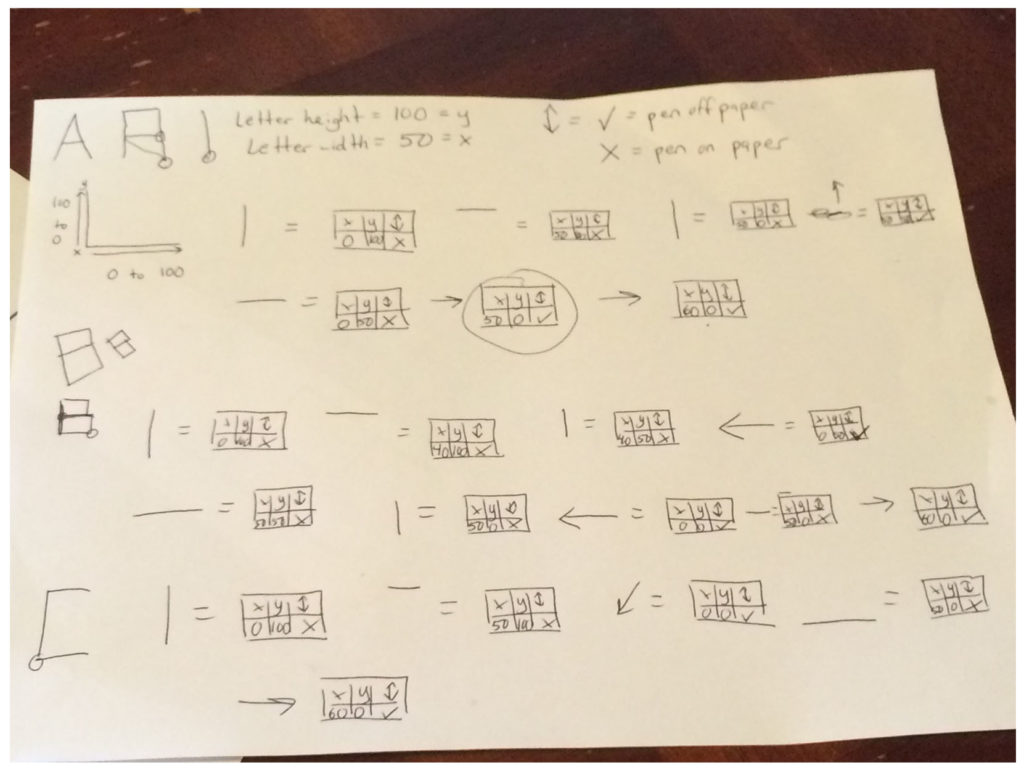 A Letter height = 100 = y ↕ = ✓ = pen off paper
Letter width = 50 = x X = pen on paper
y
100
to
0
x
0 to 100
| = x y ↕ — = x y ↕ | = x y ↕ ↑ = x y ↕
0 100 X 50 0 X
— = x y ↕ → x y ↕ → x y ↕
0 50 X 50 0 ✓ 60 0 ✓
| = x y ↕ — = x y ↕ | = x y ↕ ← = x y ↕
0 100 X 40 100 X 40 50 X
— = x y ↕ | = x y ↕ ← = x y ↕ — = x y ↕ → x y ↕
50 50 X 50 0 X 0 0 ✓ 50 0 X 60 0 ✓
| = x y ↕ — = x y ↕ ↙ = x y ↕ — = x y ↕
0 100 X 50 100 X 0 0 ✓ 50 0 X
→ x y ↕
60 0 ✓